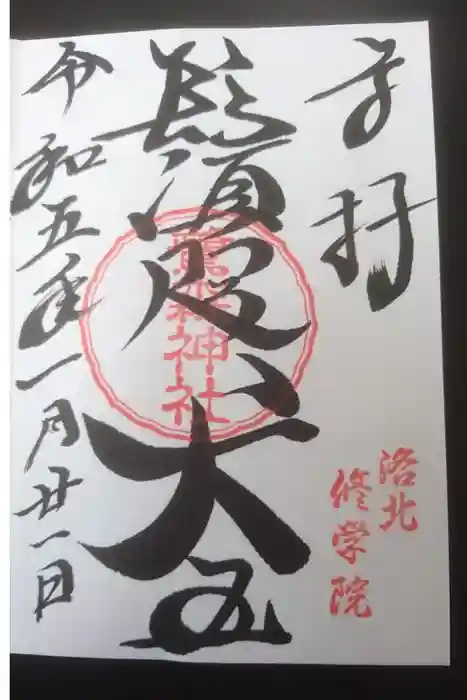 奉拝
洛北
修学院
鬚咫天王
鷺森神社
令和五年一月廿一日